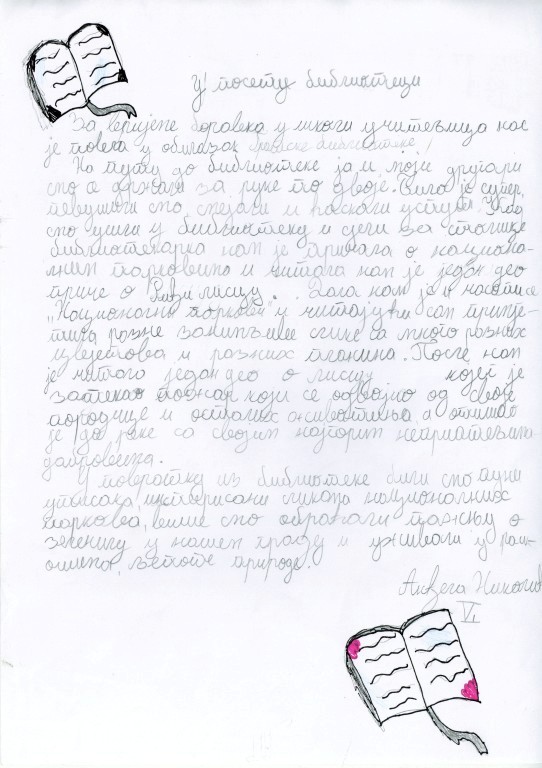 У посету библиотеци
За вријеме боравка у школи учитељица нас
је повела у обилазак градске библиотеке.
На путу до библиотеке ја и моји другари
смо се држали за руке по двоје. Било је супер,
певушили смо, смејали и скакали успут. Кад
смо ушли у библиотеку и сели за столице
библиотекарка нам је причала о национал-
ним парковима и читала нам је један део
приче о лисцу. Дала нам је и часописе
„Национални паркови” и читајући сам приме-
тила разне занимљиве слике са много разних
цвјетова и разних планина. После нам
је читала један део о лисцу којег је
затекао пожар који се одвојио од своје
породице и осталих животиња, а отишао
је до реке са својим најгорим непријатељима-
У повратку из библиотеке били смо пуни
утисака, инспирисани ликовима националних
паркова, више смо обраћали пажњу о
зеленилу у нашем граду и уживали у рас-
кошима, љепоте природе.
Анђела Николић
VI